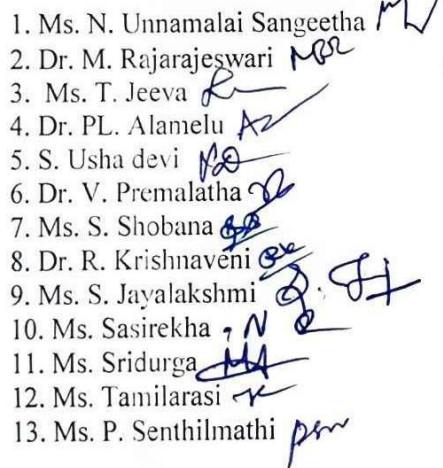 1. Ms. N. Unnamalai Sangeetha
2. Dr. M. Rajarajeswari
3. Ms. T. Jeeva
4. Dr. PL. Alamelu
5. S. Usha devi
6. Dr. V. Premalatha
7. Ms. S. Shobana
8. Dr. R. Krishnaveni
9. Ms. S. Jayalakshmi
10. Ms. Sasirekha
11. Ms. Sridurga
12. Ms. Tamilarasi
13. Ms. P. Senthilmathi